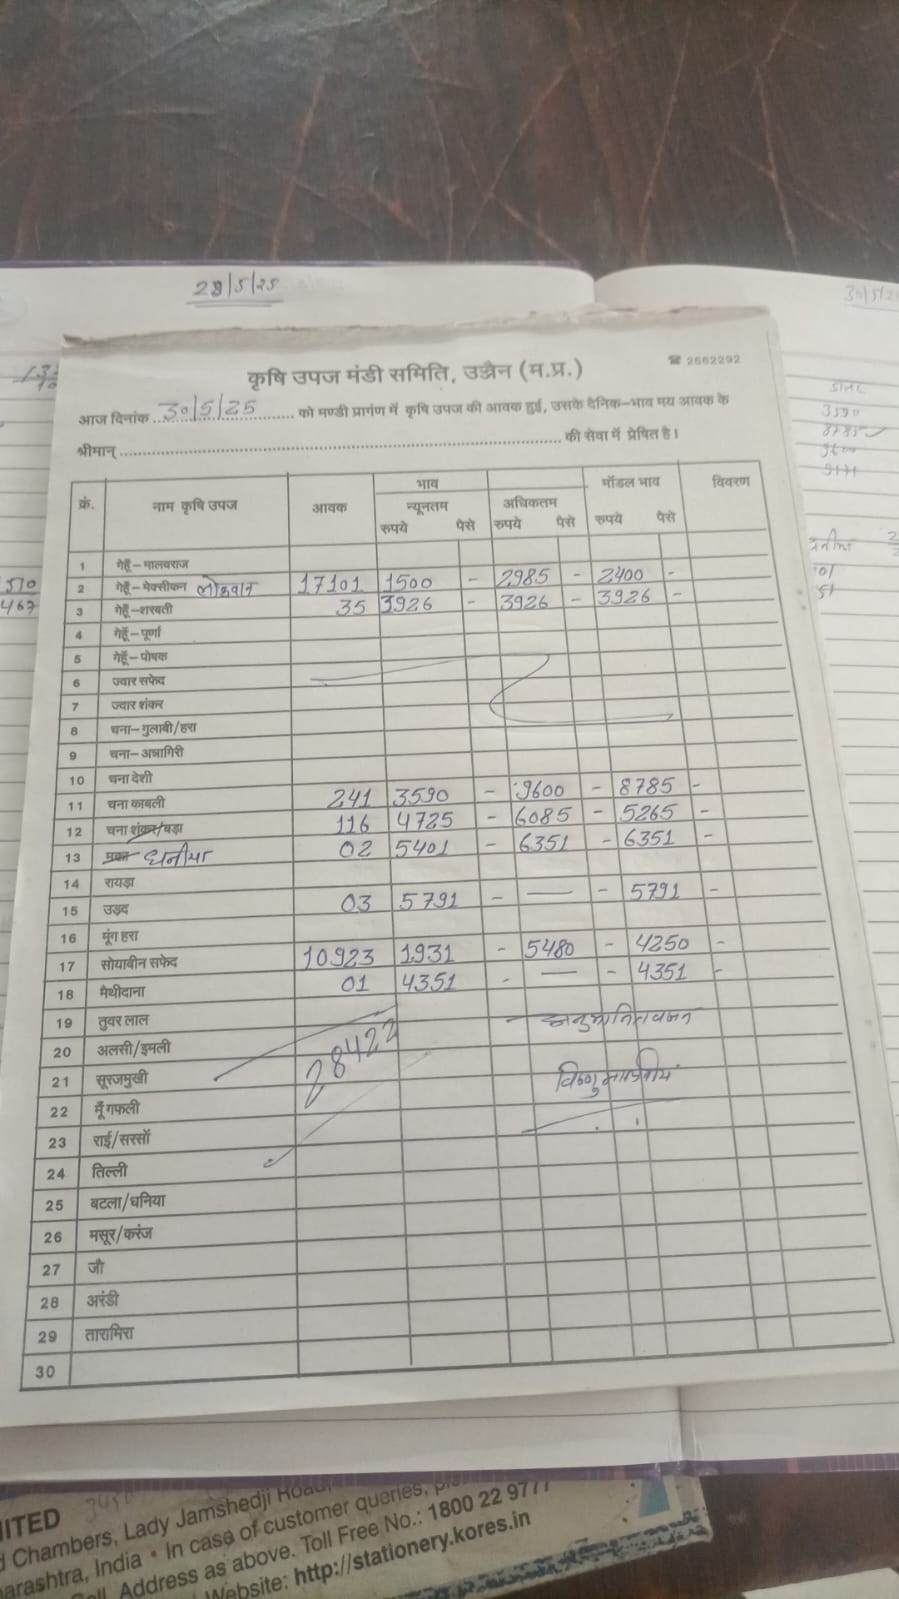 28/5/25
30/5/2
कृषि उपज मंडी समिति, उज्जैन (म.प्र.)
☎ 2562292
आज दिनांक ..30/5/25.. को मण्डी प्रागंण में कृषि उपज की आवक हुई, उसके दैनिक-भाव मय आवक के
श्रीमान् .......... की सेवा में प्रेषित है।
क्रं. नाम कृषि उपज आवक भाव न्यूनतम रुपये पैसे अधिकतम रुपये पैसे मॉडल भाव रुपये पैसे विवरण
1 गेहूँ-मालवराज
2 गेहूँ-मेक्सीकन लोकवान 17101 1500 - 2985 - 2400 -
3 गेहूँ-शरबती 35 3926 - 3926 - 3926 -
4 गेहूँ-पूर्णा
5 गेहूँ-पोषक
6 ज्वार सफेद
7 ज्वार शंकर
8 चना-गुलाबी/हरा
9 चना-अन्नागिरी
10 चना देशी
11 चना काबली 241 3590 - 9600 - 8785 -
12 चना शंकर/बड़ा 116 4725 - 6085 - 5265 -
13 मक्का धनीया 02 5401 - 6351 - 6351 -
14 रायड़ा
15 उड़द 03 5791 - — - 5791 -
16 मूंग हरा
17 सोयाबीन सफेद 10923 1931 - 5480 - 4250 -
18 मैथीदाना 01 4351 - — - 4351 -
19 तुवर लाल
20 अलसी/इमली
28422
21 सूरजमुखी
22 मूँगफली
23 राई/सरसों
24 तिल्ली
25 बटला/धनिया
26 मसूर/करंज
27 जौ
28 अरंडी
29 तारामिरा
30
3590
8785
9600
510
467
ITED
Chambers, Lady Jamshedji Road,
arashtra, India • In case of customer queries,
Address as above. Toll Free No.: 1800 22 9777
Website: http://stationery.kores.in